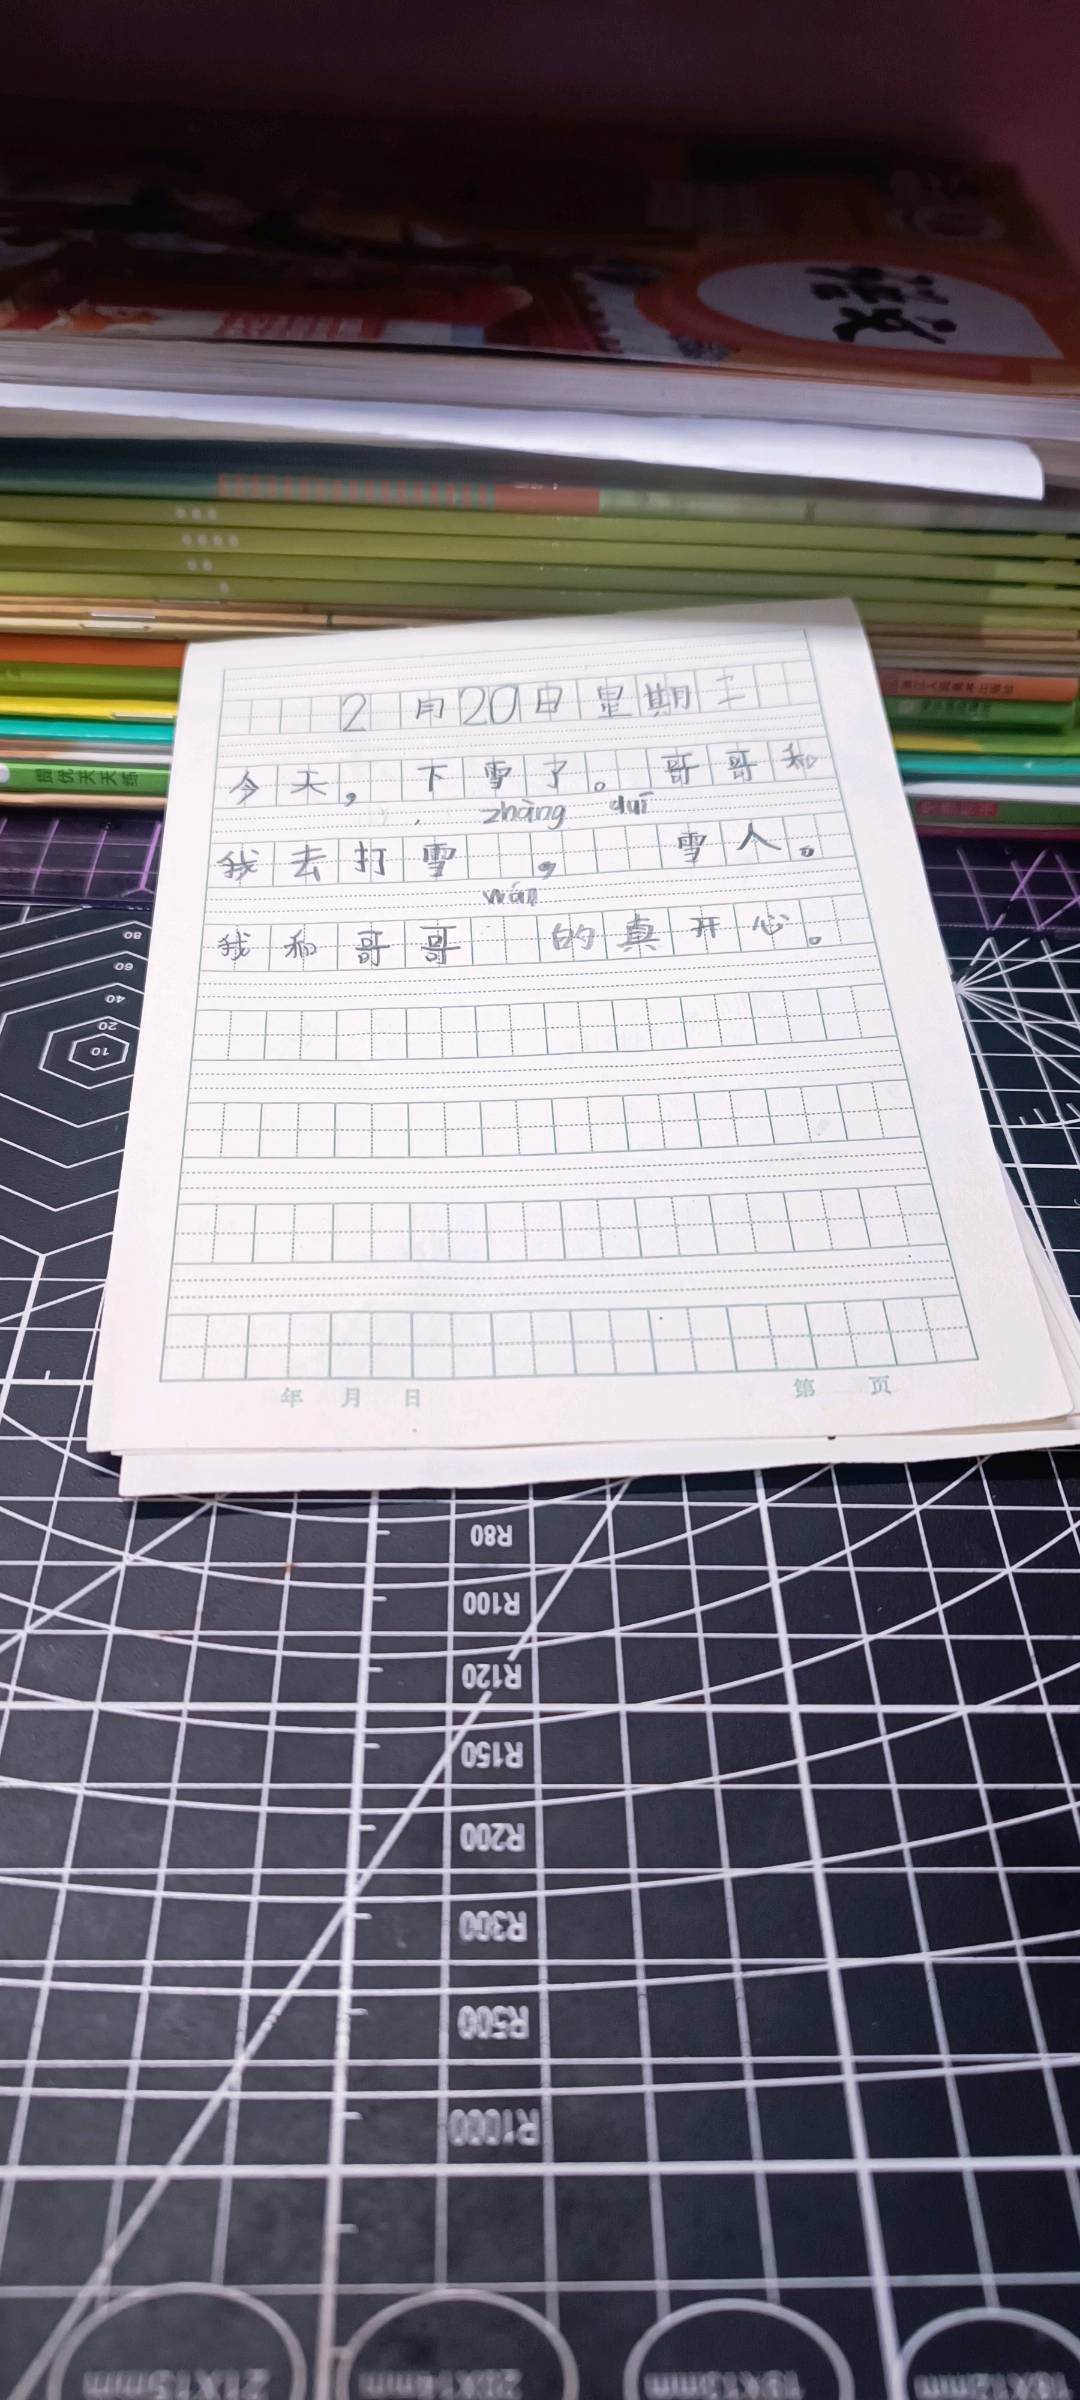 语文
提优天天练
2月20日星期二
今天，下雪了。哥哥和
zhàng duī
我去打雪，雪人。
wán
我和哥哥的真开心。
年 月 日 第 页
80
60
40
20
10
R80
R100
R120
R150
R200
R300
R500
R1000